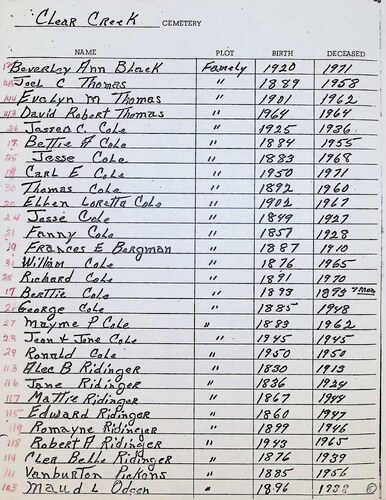 Clear Creek CEMETERY
NAME PLOT BIRTH DECEASED
Beverley Ann Black Family 1920 1971
Joel C Thomas " 1889 1958
144 Evelyn M Thomas " 1901 1962
143 David Robert Thomas " 1964 1964
26 Jassen C. Cole " 1925 1936
19 Bettie A Cole " 1884 1955
25 Jesse Cole " 1883 1968
18 Carl E Cole " 1950 1971
30 Thomas Cole " 1892 1960
20 Ellen Loretta Cole " 1902 1967
24 Jesse Cole " 1849 1927
21 Fanny Cole " 1857 1928
9 Frances E Bergman " 1887 1910
31 William Cole " 1876 1965
28 Richard Cole " 1891 1970
17 Berttie Cole " 1893 1893 7 mon
George Cole " 1885 1948
27 Mayme P Cole " 1883 1962
23 Jean & Jane Cole " 1945 1945
29 Ronald Cole " 1950 1950
113 Alec B Ridinger " 1830 1913
116 Jane Ridinger " 1836 1924
117 Mattie Ridinger " 1867 1944
115 Edward Ridinger " 1860 1947
119 Romayne Ridinger " 1899 1946
118 Robert A Ridinger " 1943 1965
114 Clea Belle Ridinger " 1876 1939
111 Vanburton Pickons " 1885 1956
103 Maud L Odgen " 1896